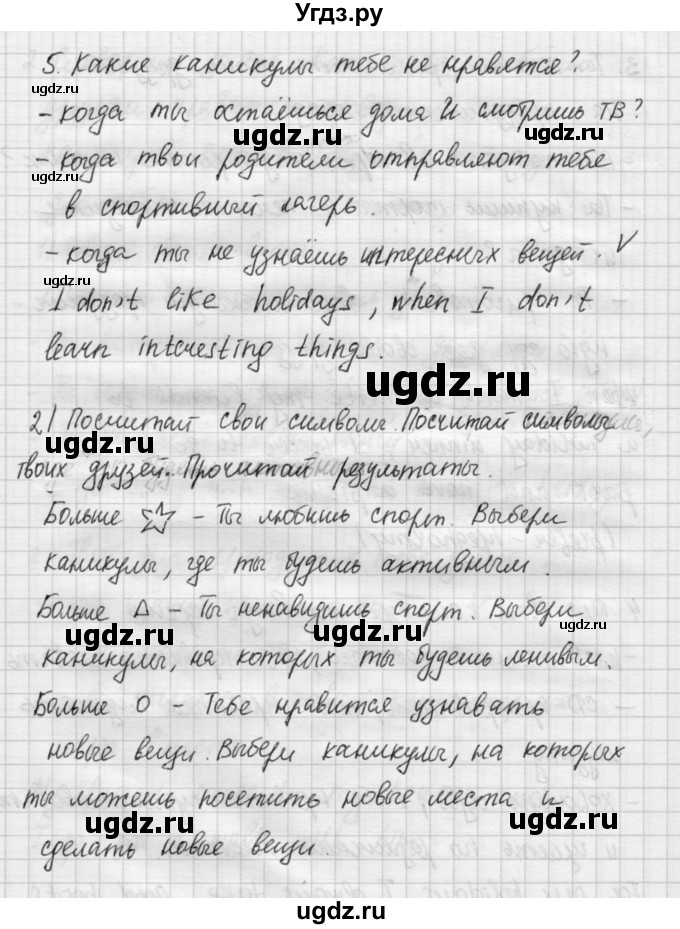 Угдз.ру
5. Какие каникулы тебе не нравятся?
ugdz.ru
- когда ты остаёшься дома и смотришь ТВ?
ugdz.ru
- когда твои родители отправляют тебе
ugdz.ru
в спортивный лагерь.
- когда ты не узнаёшь интересных вещей. V
ugdz.ru
I don't like holidays, when I don't
learn interesting things.
ugdz.ru
2) Посчитай свои символы. Посчитай символы
твоих друзей. Прочитай результаты.
Больше ☆ - Ты любишь спорт. Выбери
каникулы, где ты будешь активным.
Больше Δ - Ты ненавидишь спорт. Выбери
ugdz.ru ugdz.ru ugdz.ru
каникулы, на которых ты будешь ленивым.
Больше О - Тебе нравится узнавать
новые вещи. Выбери каникулы, на которых
ты можешь посетить новые места и
ugdz.ru ugdz.ru
сделать новые вещи.
ugdz.ru